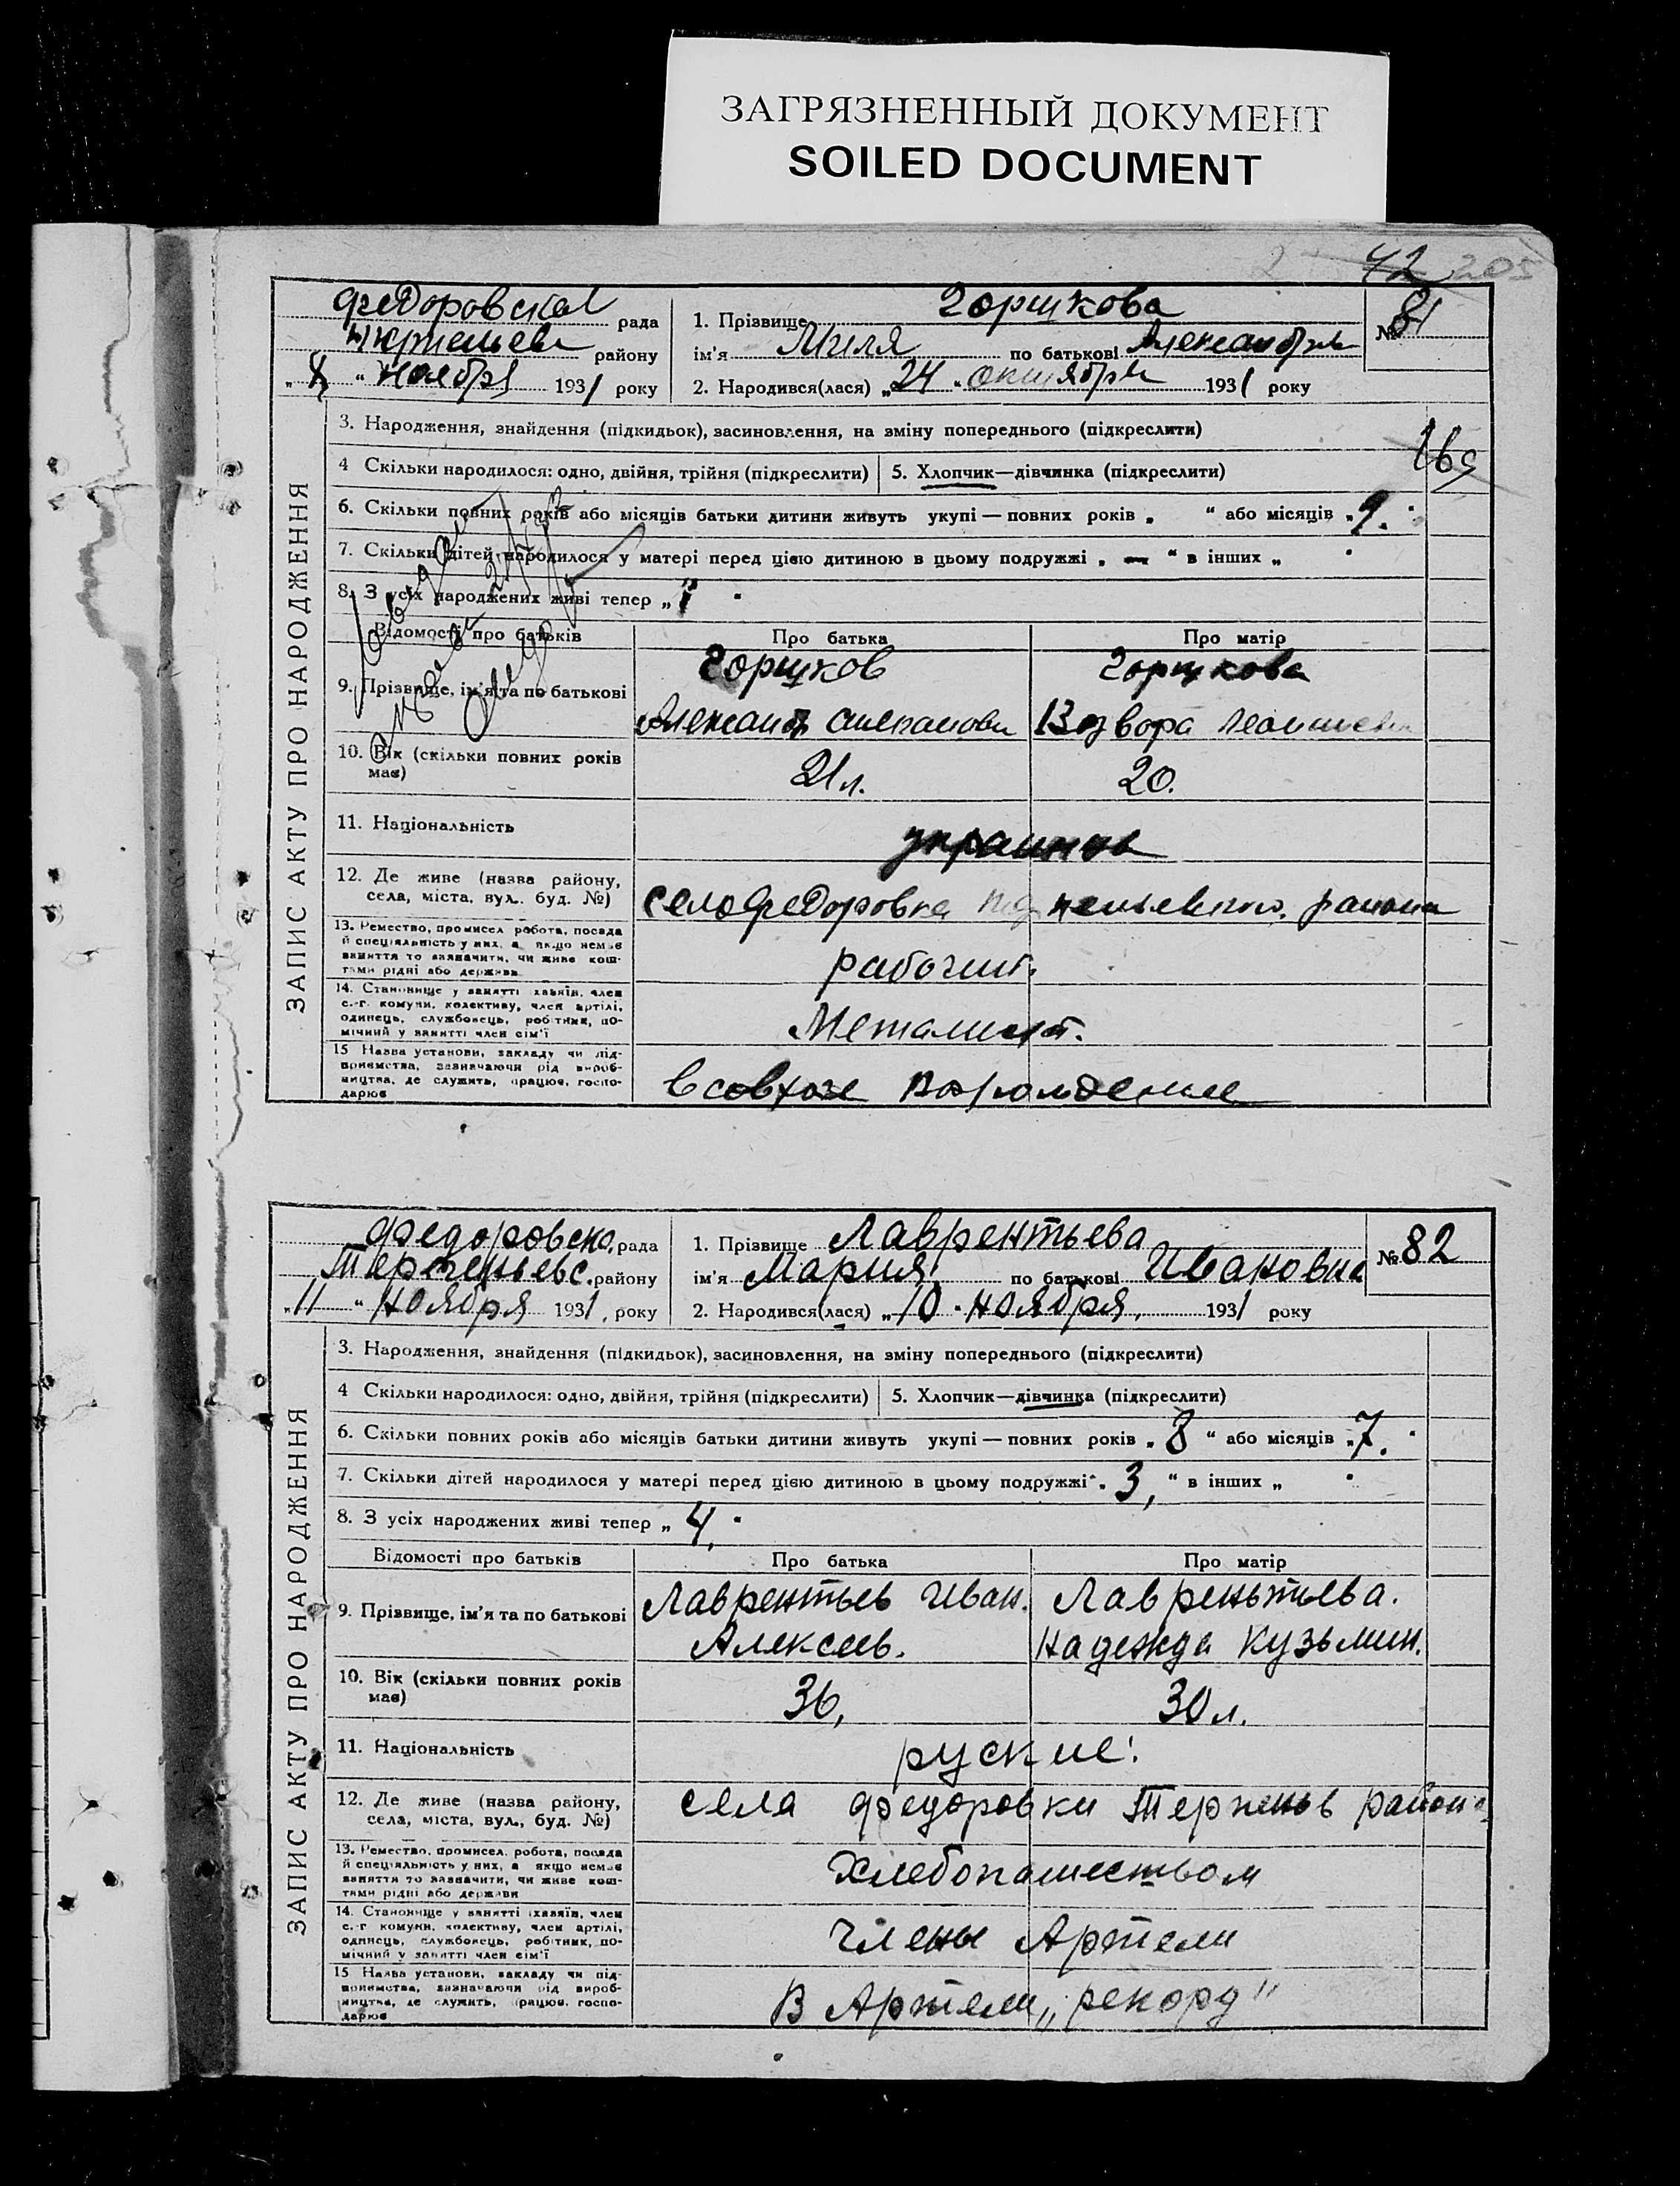 ЗАГРЯЗНЕННЫЙ ДОКУМЕНТ
SOILED DOCUMENT
42 205
Федоровская рада
району
„8“ ноября 1931 року
1. Прізвище Горшкова
№ 81
ім'я Миля по батькові Александр
2. Народився(лася) „24“ октября 1931 року
ЗАПИС АКТУ ПРО НАРОДЖЕННЯ
3. Народження, знайдення (підкидьок), засиновлення, на зміну попереднього (підкреслити)
4 Скільки народилося: одно, двійня, трійня (підкреслити)
5. Хлопчик—дівчинка (підкреслити)
6. Скільки повних років або місяців батьки дитини живуть укупі — повних років „ “ або місяців „9.“
7. Скільки дітей народилося у матері перед цією дитиною в цьому подружжі „—“ в інших „
8. З усіх народжених живі тепер „1“
Відомості про батьків
Про батька
Про матір
9. Прізвище, ім'я та по батькові
Горшков
Горшкова
10. Вік (скільки повних років має)
21 л.
20.
11. Національність
12. Де живе (назва району, села, міста, вул. буд. №)
село Федоровка района
13. Ремество, промисел робота, посада й спеціяльність у них, а якщо немає заняття то зазначити, чи живе коштами рідні або держави
рабочий.
14. Становище у занятті хазяїн, член с.-г. комуни, колективу, член артілі, одинець, службовець, робітник, помічний у занятті член сім'ї
Металист.
15 Назва установи, закладу чи підприємства, зазначаючи рід виробництва, де служить, працює, господарює
в совхозе Возрождение
Федоровска. рада
Терпеньевс. району
„11“ ноября 1931, року
1. Прізвище Лаврентьева
№ 82
ім'я Мария по батькові Ивановна
2. Народився(лася) „10“ ноября, 1931 року
ЗАПИС АКТУ ПРО НАРОДЖЕННЯ
3. Народження, знайдення (підкидьок), засиновлення, на зміну попереднього (підкреслити)
4 Скільки народилося: одно, двійня, трійня (підкреслити)
5. Хлопчик—дівчинка (підкреслити)
6. Скільки повних років або місяців батьки дитини живуть укупі — повних років „8“ або місяців „7.“
7. Скільки дітей народилося у матері перед цією дитиною в цьому подружжі „3,“ в інших „
8. З усіх народжених живі тепер „4,“
Відомості про батьків
Про батька
Про матір
9. Прізвище, ім'я та по батькові
Лаврентьев Иван.
Алексеев.
Лавреньтьева.
Надежда Кузьмин.
10. Вік (скільки повних років має)
36,
30 л.
11. Національність
руские.
12. Де живе (назва району, села, міста, вул., буд. №)
села Федоровки Терпеньев района
13. Ремество, промисел, робота, посада й спеціяльність у них, а якщо немає заняття то зазначити, чи живе коштами рідні або держави
Хлебопашеством
14. Становище у занятті (хазяїн, член с.-г комуни, колективу, член артілі, одинець, службовець, робітник, помічний у занятті член сім'ї
Члены Артели
15 Назва установи, закладу чи підприємства, зазначаючи рід виробництва, де служить, працює, господарює
В Артели „рекорд“